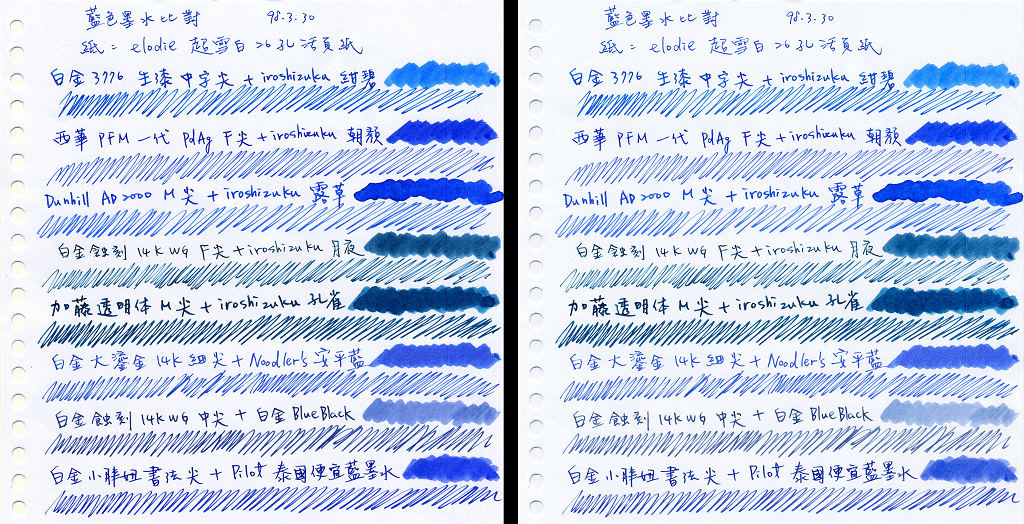 藍色墨水比對 98.3.30
紙= elodie 超雪白 26孔活頁紙
白金3776 生漆中字尖 + iroshizuku 紺碧
西華 PFM 一代 PdAg F尖 + iroshizuku 朝顏
Dunhill AD2000 M尖 + iroshizuku 露草
白金蝕刻 14K WG F尖 + iroshizuku 月夜
加藤透明体 M尖 + iroshizuku 孔雀
白金大鎏金 14K 細尖 + Noodler's 安平藍
白金蝕刻 14K WG 中尖 + 白金 BlueBlack
白金小胖妞書法尖 + Pilot 泰國便宜藍墨水
藍色墨水比對 98.3.30
紙= elodie 超雪白 26孔活頁紙
白金3776 生漆中字尖 + iroshizuku 紺碧
西華 PFM 一代 PdAg F尖 + iroshizuku 朝顏
Dunhill AD2000 M尖 + iroshizuku 露草
白金蝕刻 14K WG F尖 + iroshizuku 月夜
加藤透明体 M尖 + iroshizuku 孔雀
白金大鎏金 14K 細尖 + Noodler's 安平藍
白金蝕刻 14K WG 中尖 + 白金 BlueBlack
白金小胖妞書法尖 + Pilot 泰國便宜藍墨水